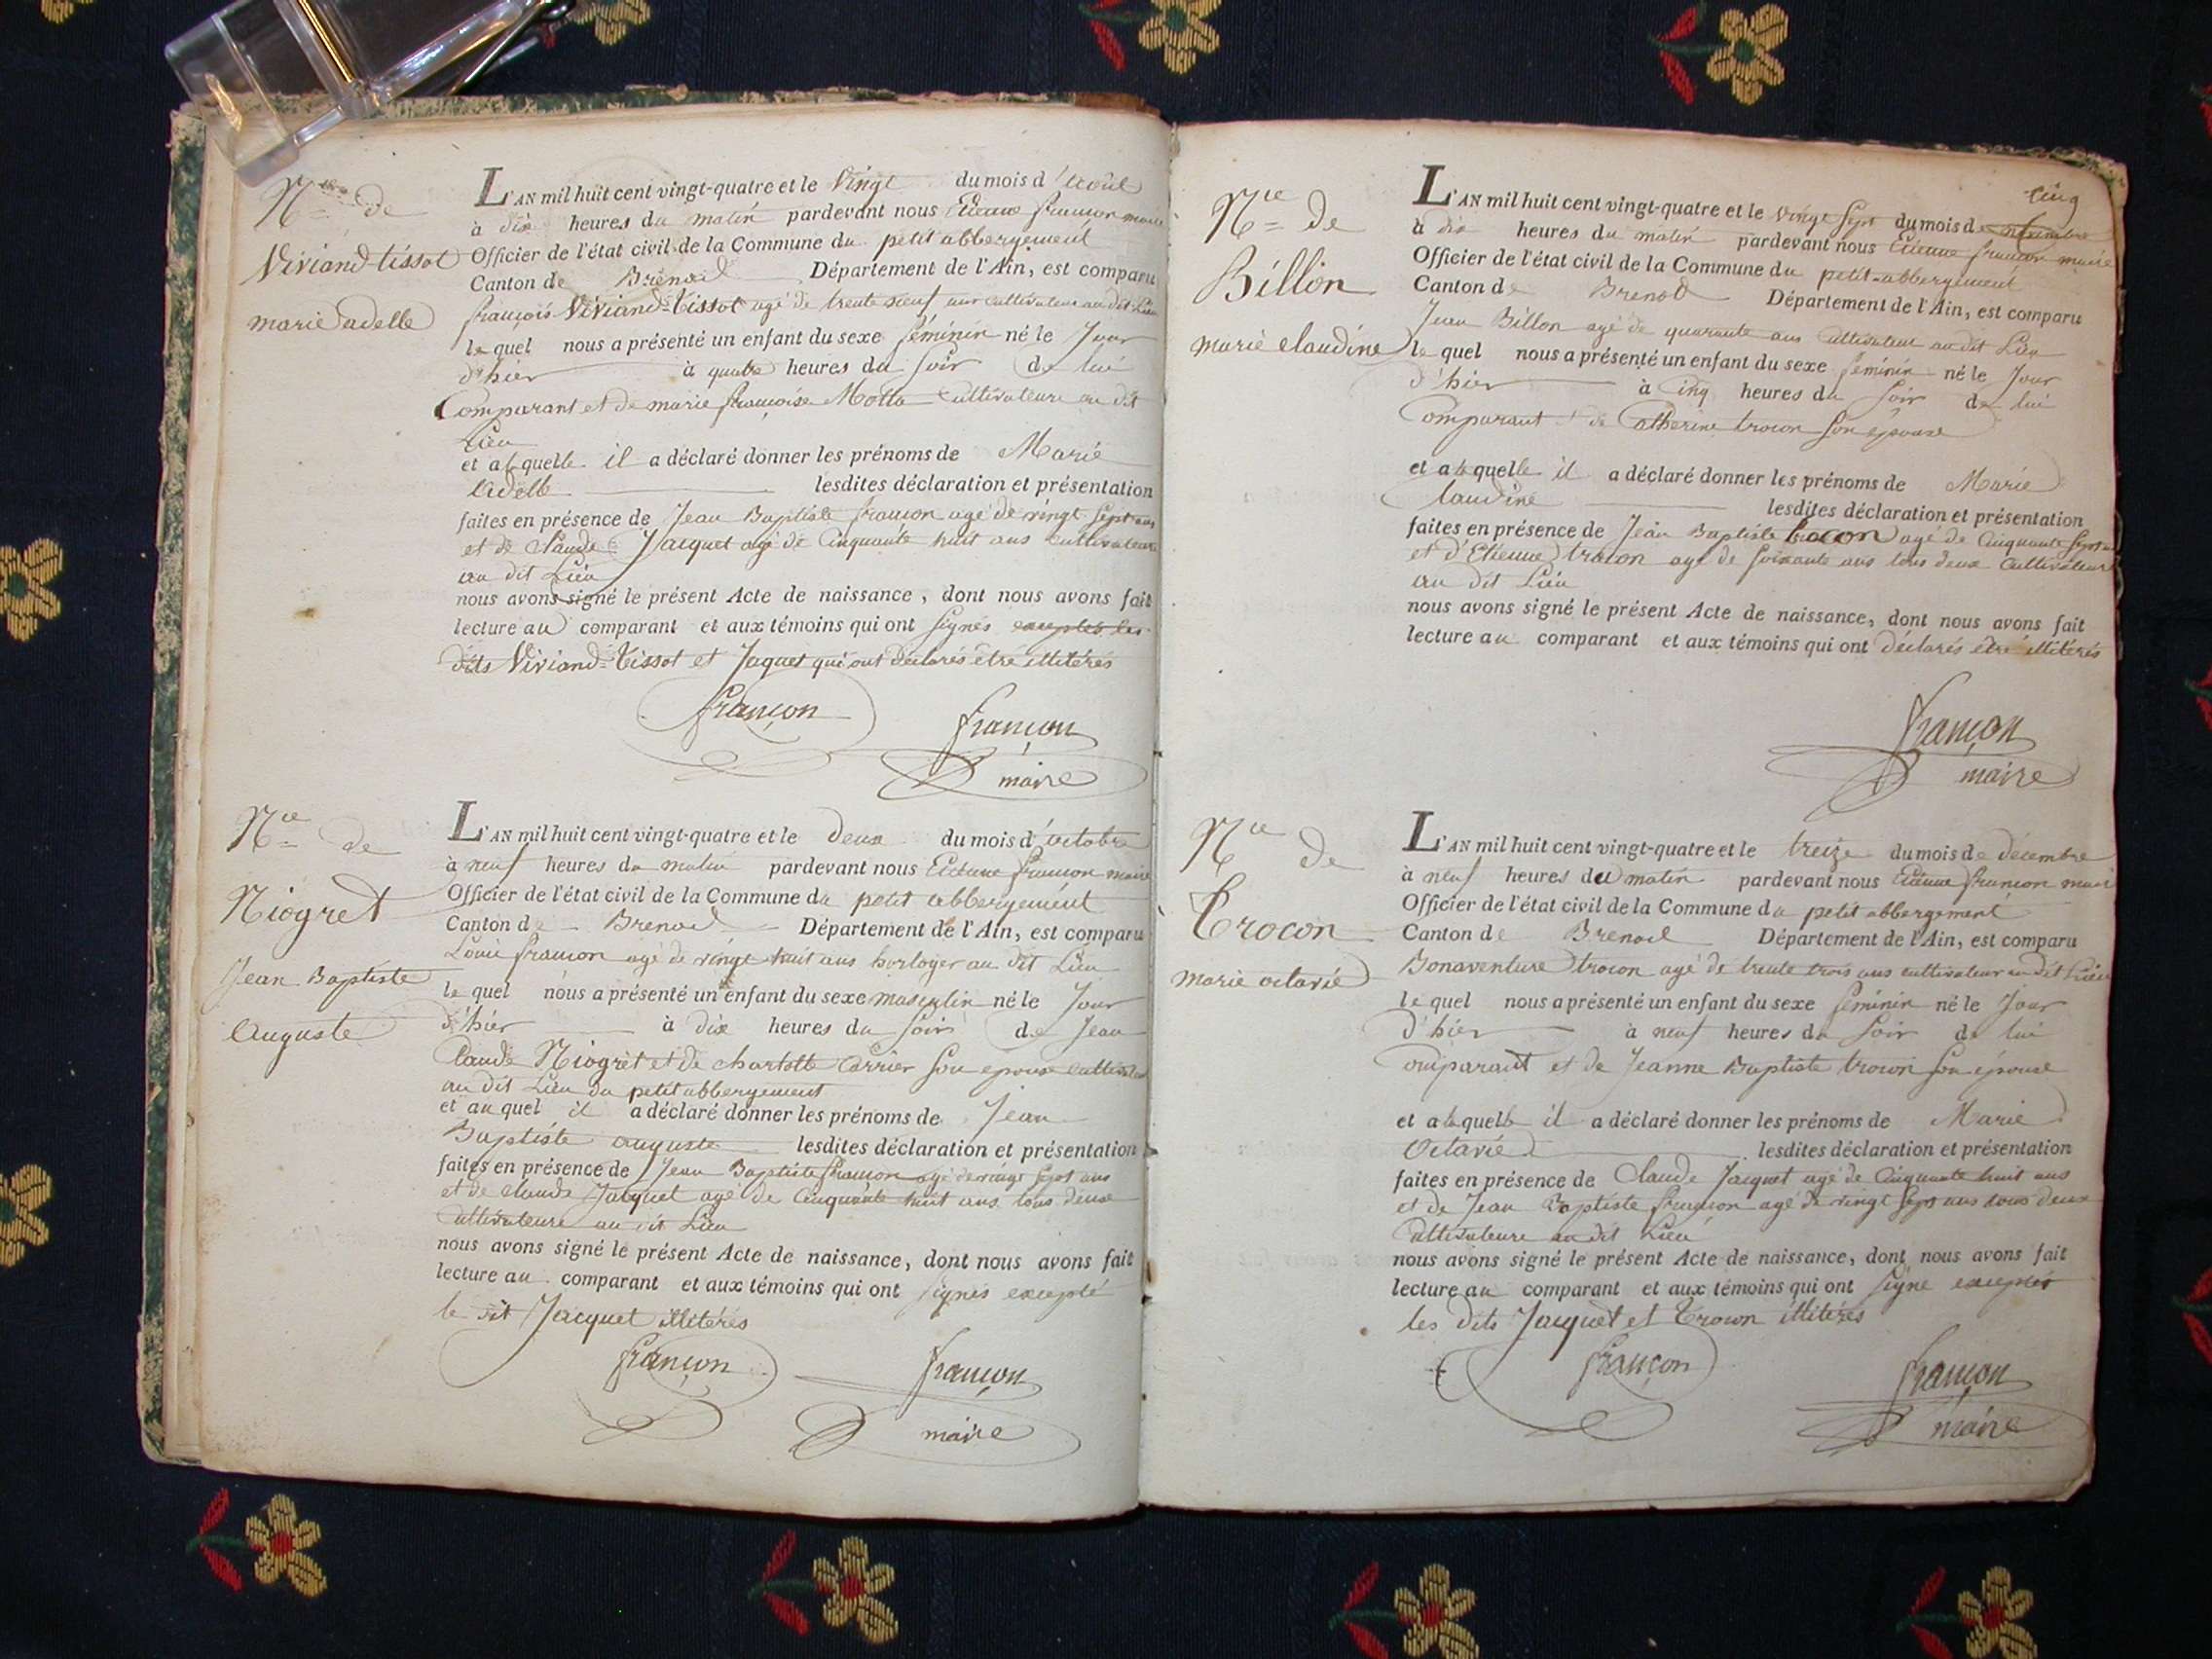 Nce de
Viviand-tissot
marie adelle
L'AN mil huit cent vingt-quatre et le Vingt du mois d'aout
à dix heures du matin pardevant nous Etienne françon maire
Officier de l'état civil de la Commune du petit abbergement
Canton de Brenod Département de l'Ain, est comparu
françois Viviand-Tissot agé de trente neuf ans cultivateur au dit Lieu
le quel nous a présenté un enfant du sexe féminin né le Jour
d'hier à quatre heures du soir de lui
Comparant et de marie françoise Motta Cultivateurs au dit
Lieu
et a laquelle il a déclaré donner les prénoms de Marie
Adelle lesdites déclaration et présentation
faites en présence de Jean Baptiste françon agé de vingt sept ans
et de Claude Jacquet agé de Cinquante huit ans cultivateurs
au dit Lieu
nous avons signé le présent Acte de naissance, dont nous avons fait
lecture au comparant et aux témoins qui ont signés exceptés les
dits Viviand-Tissot et Jaquet qui ont déclarés être illitérés
françon
françon
maire
Nce de
Niogret
Jean Baptiste
Auguste
L'AN mil huit cent vingt-quatre et le deux du mois d'octobre
à neuf heures du matin pardevant nous Etienne françon maire
Officier de l'état civil de la Commune du petit abbergement
Canton de Brenod Département de l'Ain, est comparu
Louis françon agé de vingt huit ans horloger au dit Lieu
le quel nous a présenté un enfant du sexe masculin né le Jour
d'hier à dix heures du soir de Jean
Claude Niogret et de charlotte Carrier son épouse cultivateurs
au dit Lieu du petit abbergement
et au quel il a déclaré donner les prénoms de Jean
Baptiste auguste lesdites déclaration et présentation
faites en présence de Jean Baptiste françon agé de vingt sept ans
et de claude Jacquet agé de Cinquante huit ans tous deux
Cultivateurs au dit Lieu
nous avons signé le présent Acte de naissance, dont nous avons fait
lecture au comparant et aux témoins qui ont signés excepté
le dit Jacquet illitérés
françon
françon
maire
cinq
Nce de
Billion
marie claudine
L'AN mil huit cent vingt-quatre et le vingt sept du mois de novembre
à dix heures du matin pardevant nous Etienne françon maire
Officier de l'état civil de la Commune du petit-abbergement
Canton de Brenod Département de l'Ain, est comparu
Jean Billon agé de quarante ans cultivateur au dit Lieu
le quel nous a présenté un enfant du sexe féminin né le Jour
d'hier à Cinq heures du soir de lui
Comparant et de Catherine trocon son épouse
et a laquelle il a déclaré donner les prénoms de Marie
Claudine lesdites déclaration et présentation
faites en présence de Jean Baptiste trocon agé de Cinquante sept ans
et d'Etienne trocon agé de soixante ans tous deux Cultivateurs
au dit Lieu
nous avons signé le présent Acte de naissance, dont nous avons fait
lecture au comparant et aux témoins qui ont déclarés être illitérés
françon
maire
Nce de
Trocon
marie octavie
L'AN mil huit cent vingt-quatre et le treize du mois de décembre
à neuf heures du matin pardevant nous Etienne françon maire
Officier de l'état civil de la Commune du petit abbergement
Canton de Brenod Département de l'Ain, est comparu
Bonaventure trocon agé de trente trois ans cultivateur au dit Lieu
le quel nous a présenté un enfant du sexe féminin né le Jour
d'hier à neuf heures du soir de lui
Comparant et de Jeanne Baptiste trocon son épouse
et a laquelle il a déclaré donner les prénoms de Marie
Octavie lesdites déclaration et présentation
faites en présence de Claude Jacquet agé de Cinquante huit ans
et de Jean Baptiste françon agé de vingt sept ans tous deux
Cultivateurs au dit Lieu
nous avons signé le présent Acte de naissance, dont nous avons fait
lecture au comparant et aux témoins qui ont signé exceptés
les dits Jacquet et Trocon illitérés
françon
françon
maire